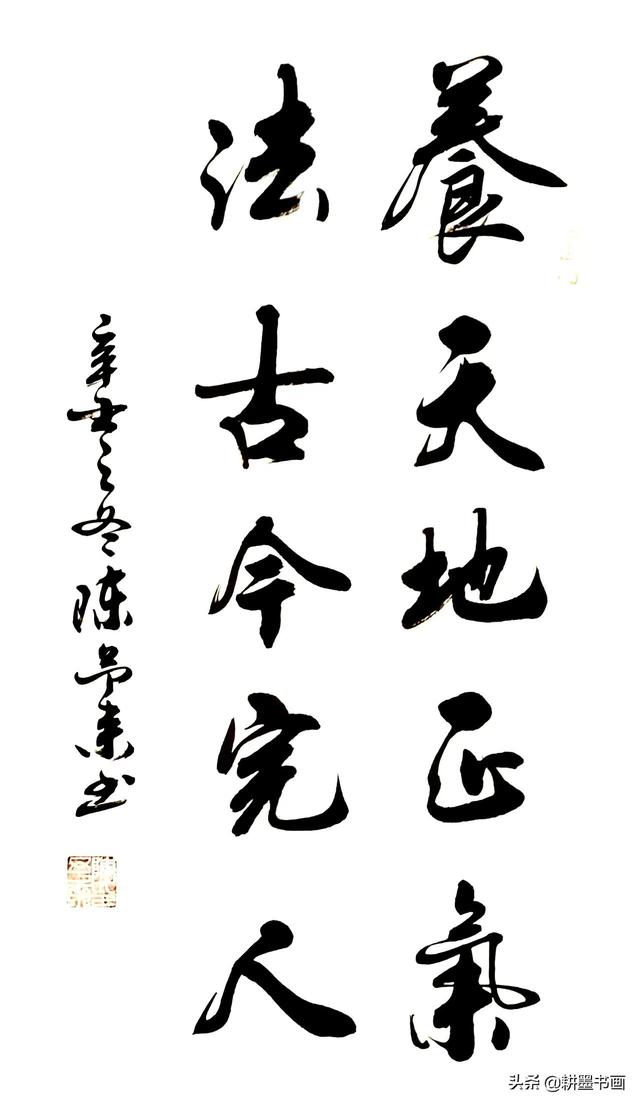 養天地正氣
法古今完人
辛丑之冬陈书
头条 @耕墨书画